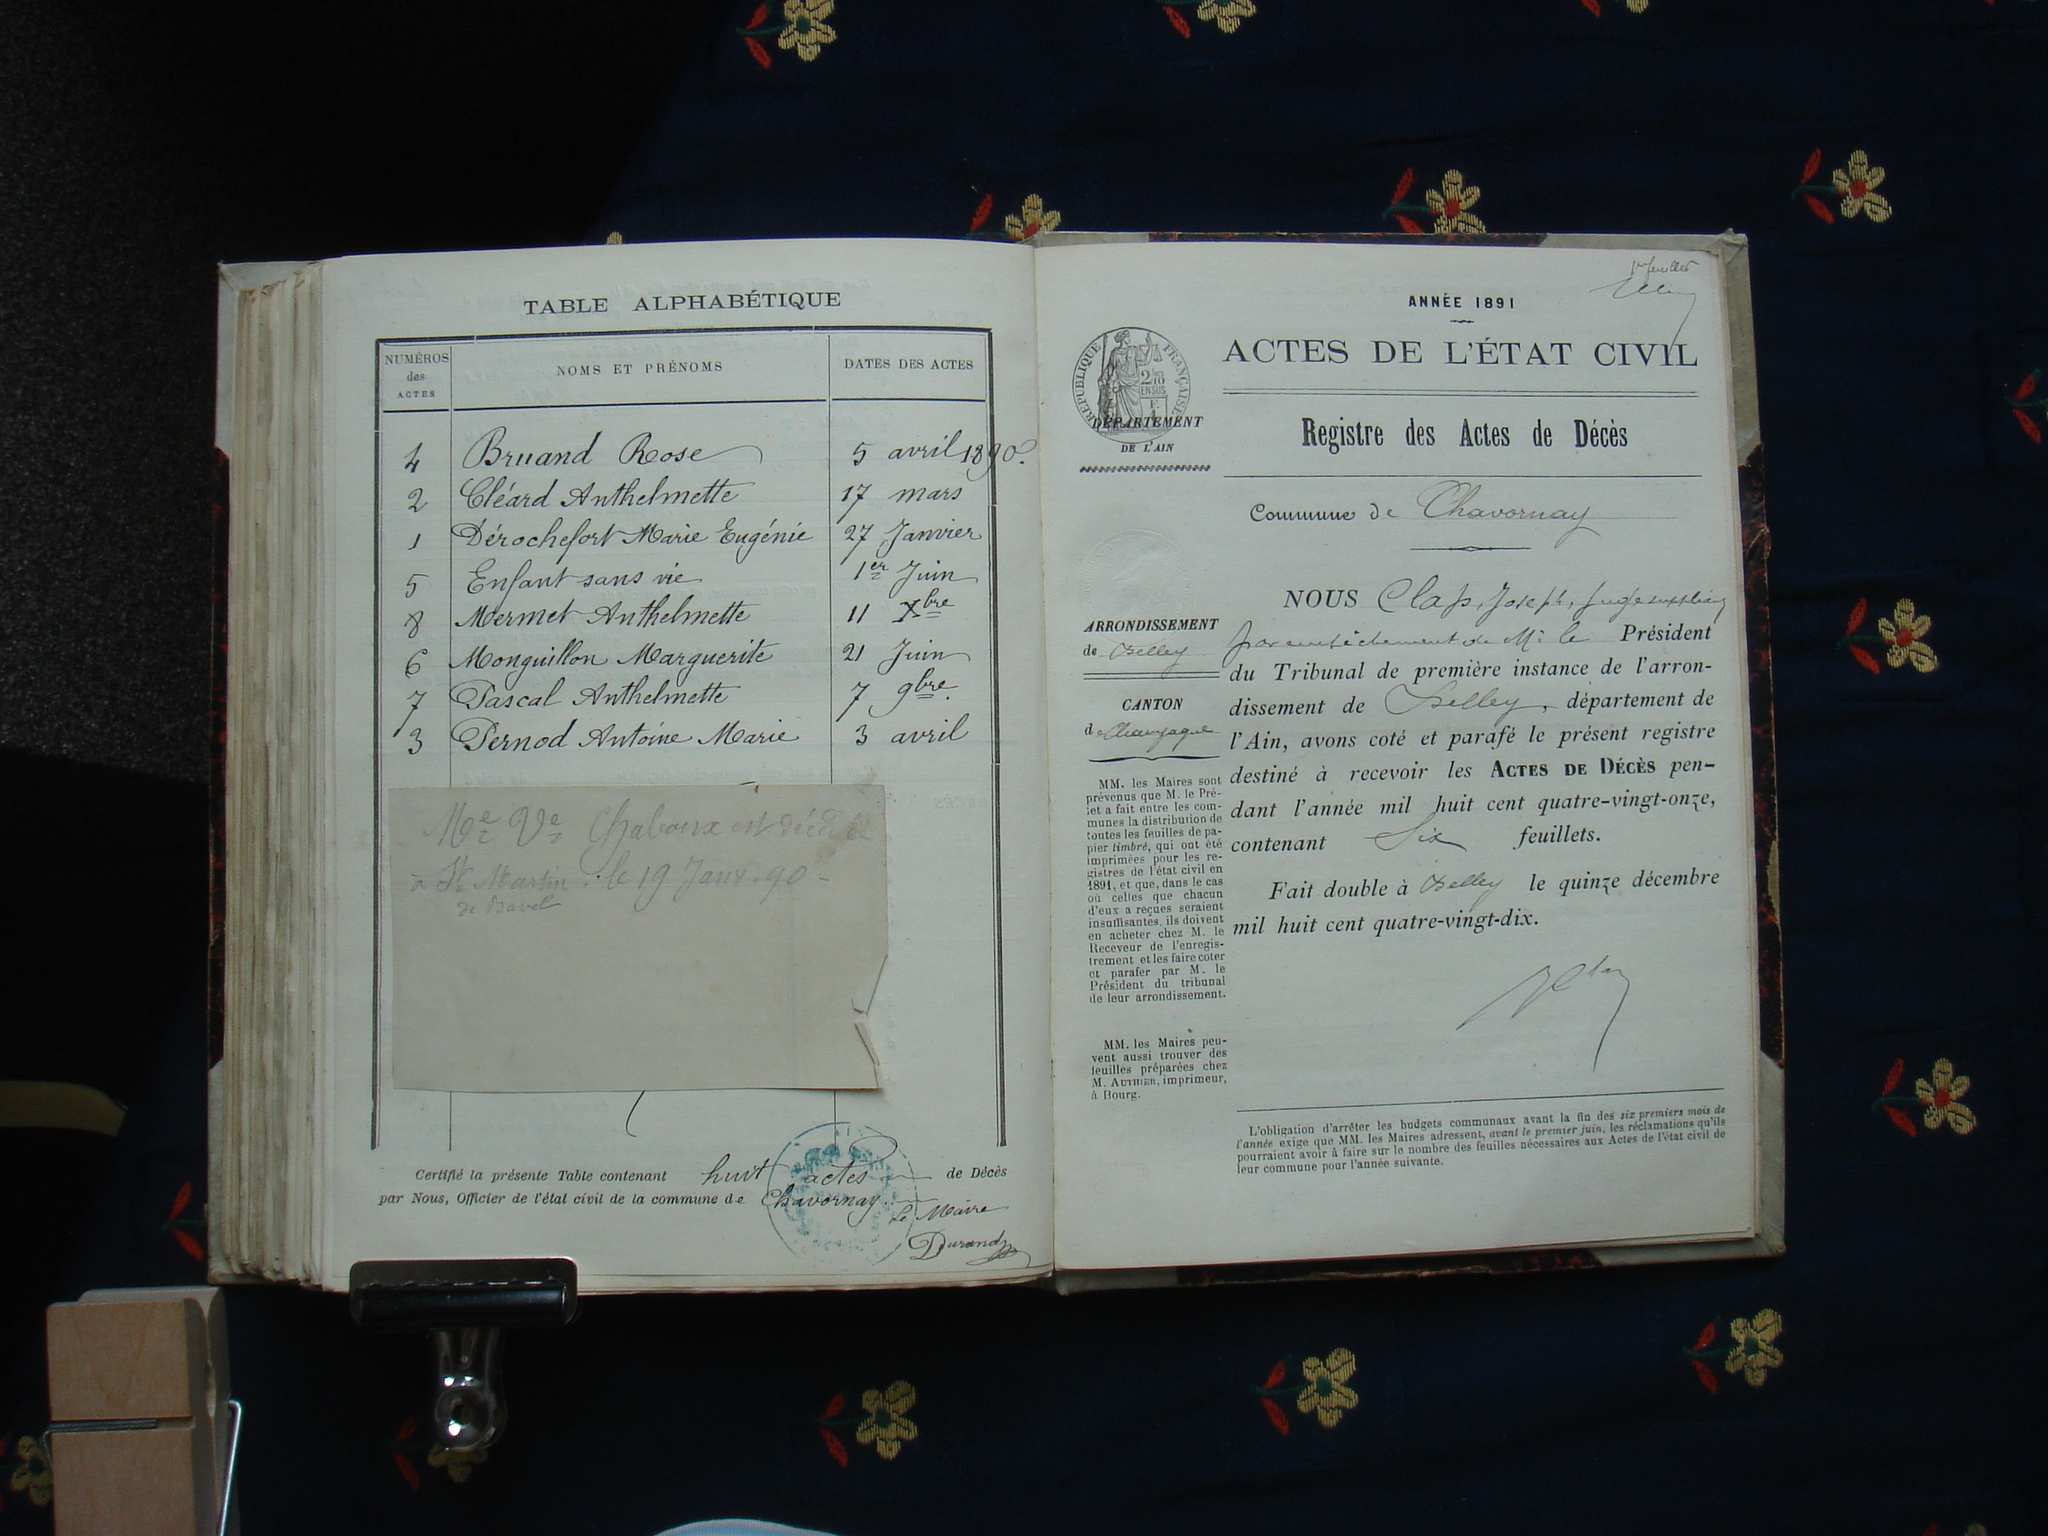 TABLE ALPHABÉTIQUE
NUMÉROS des ACTES
NOMS ET PRÉNOMS
DATES DES ACTES
4 Bruand Rose 5 avril 1890.
2 Cléard Anthelmette 17 mars
1 Dérochefort Marie Eugénie 27 Janvier
5 Enfant sans vie 1er Juin
8 Mermet Anthelmette 11 Xbre
6 Monguillon Marguerite 21 Juin
7 Pascal Anthelmette 7 9bre.
3 Pernod Antoine Marie 3 avril
Me Ve Chaboux est décédée
à St Martin . le 19 Janv. 90 -
de Bavel
Certifié la présente Table contenant huit actes de Décès
par Nous, Officier de l'état civil de la commune de Chavornay
Le Maire
Durand
1er feuillet
ANNÉE 1891
ACTES DE L'ÉTAT CIVIL
RÉPUBLIQUE FRANÇAISE
DÉPARTEMENT
DE L'AIN
Registre des Actes de Décès
Commune de Chavornay
ARRONDISSEMENT
de Belley
CANTON
de Champagne
MM. les Maires sont
prévenus que M. le Pré-
fet a fait entre les com-
munes la distribution de
toutes les feuilles de pa-
pier timbré, qui ont été
imprimées pour les re-
gistres de l'état civil en
1891, et que, dans le cas
où celles que chacun
d'eux a reçues seraient
insuffisantes, ils doivent
en acheter chez M. le
Receveur de l'enregis-
trement et les faire coter
et parafer par M. le
Président du tribunal
de leur arrondissement.
MM. les Maires peu-
vent aussi trouver des
feuilles préparées chez
M. AUTHIER, imprimeur,
à Bourg.
NOUS Clap, Joseph, Juge suppléant
par empêchement de Mr le Président
du Tribunal de première instance de l'arron-
dissement de Belley, département de
l'Ain, avons coté et parafé le présent registre
destiné à recevoir les ACTES DE DÉCÈS pen-
dant l'année mil huit cent quatre-vingt-onze,
contenant Six feuillets.
Fait double à Belley le quinze décembre
mil huit cent quatre-vingt-dix.
L'obligation d'arrêter les budgets communaux avant la fin des six premiers mois de
l'année exige que MM. les Maires adressent, avant le premier juin, les réclamations qu'ils
pourraient avoir à faire sur le nombre des feuilles nécessaires aux Actes de l'état civil de
leur commune pour l'année suivante.